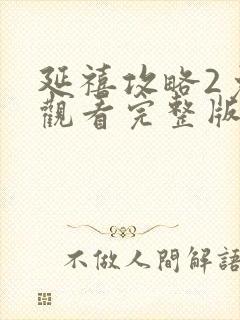 延禧攻略2
觀看完整版
不做人間解語